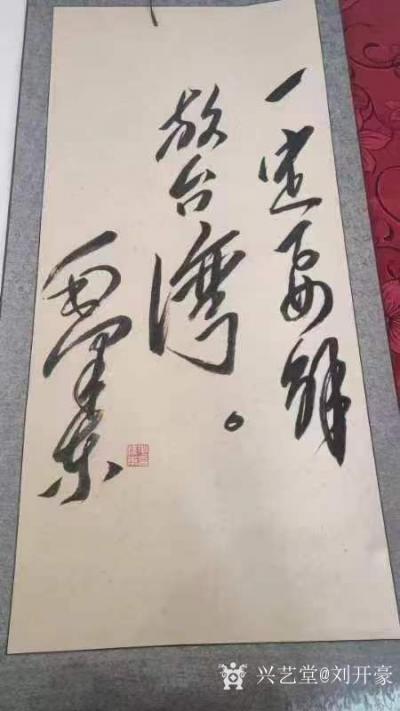 一定要解
放台湾。
毛泽东
兴艺堂@刘开豪